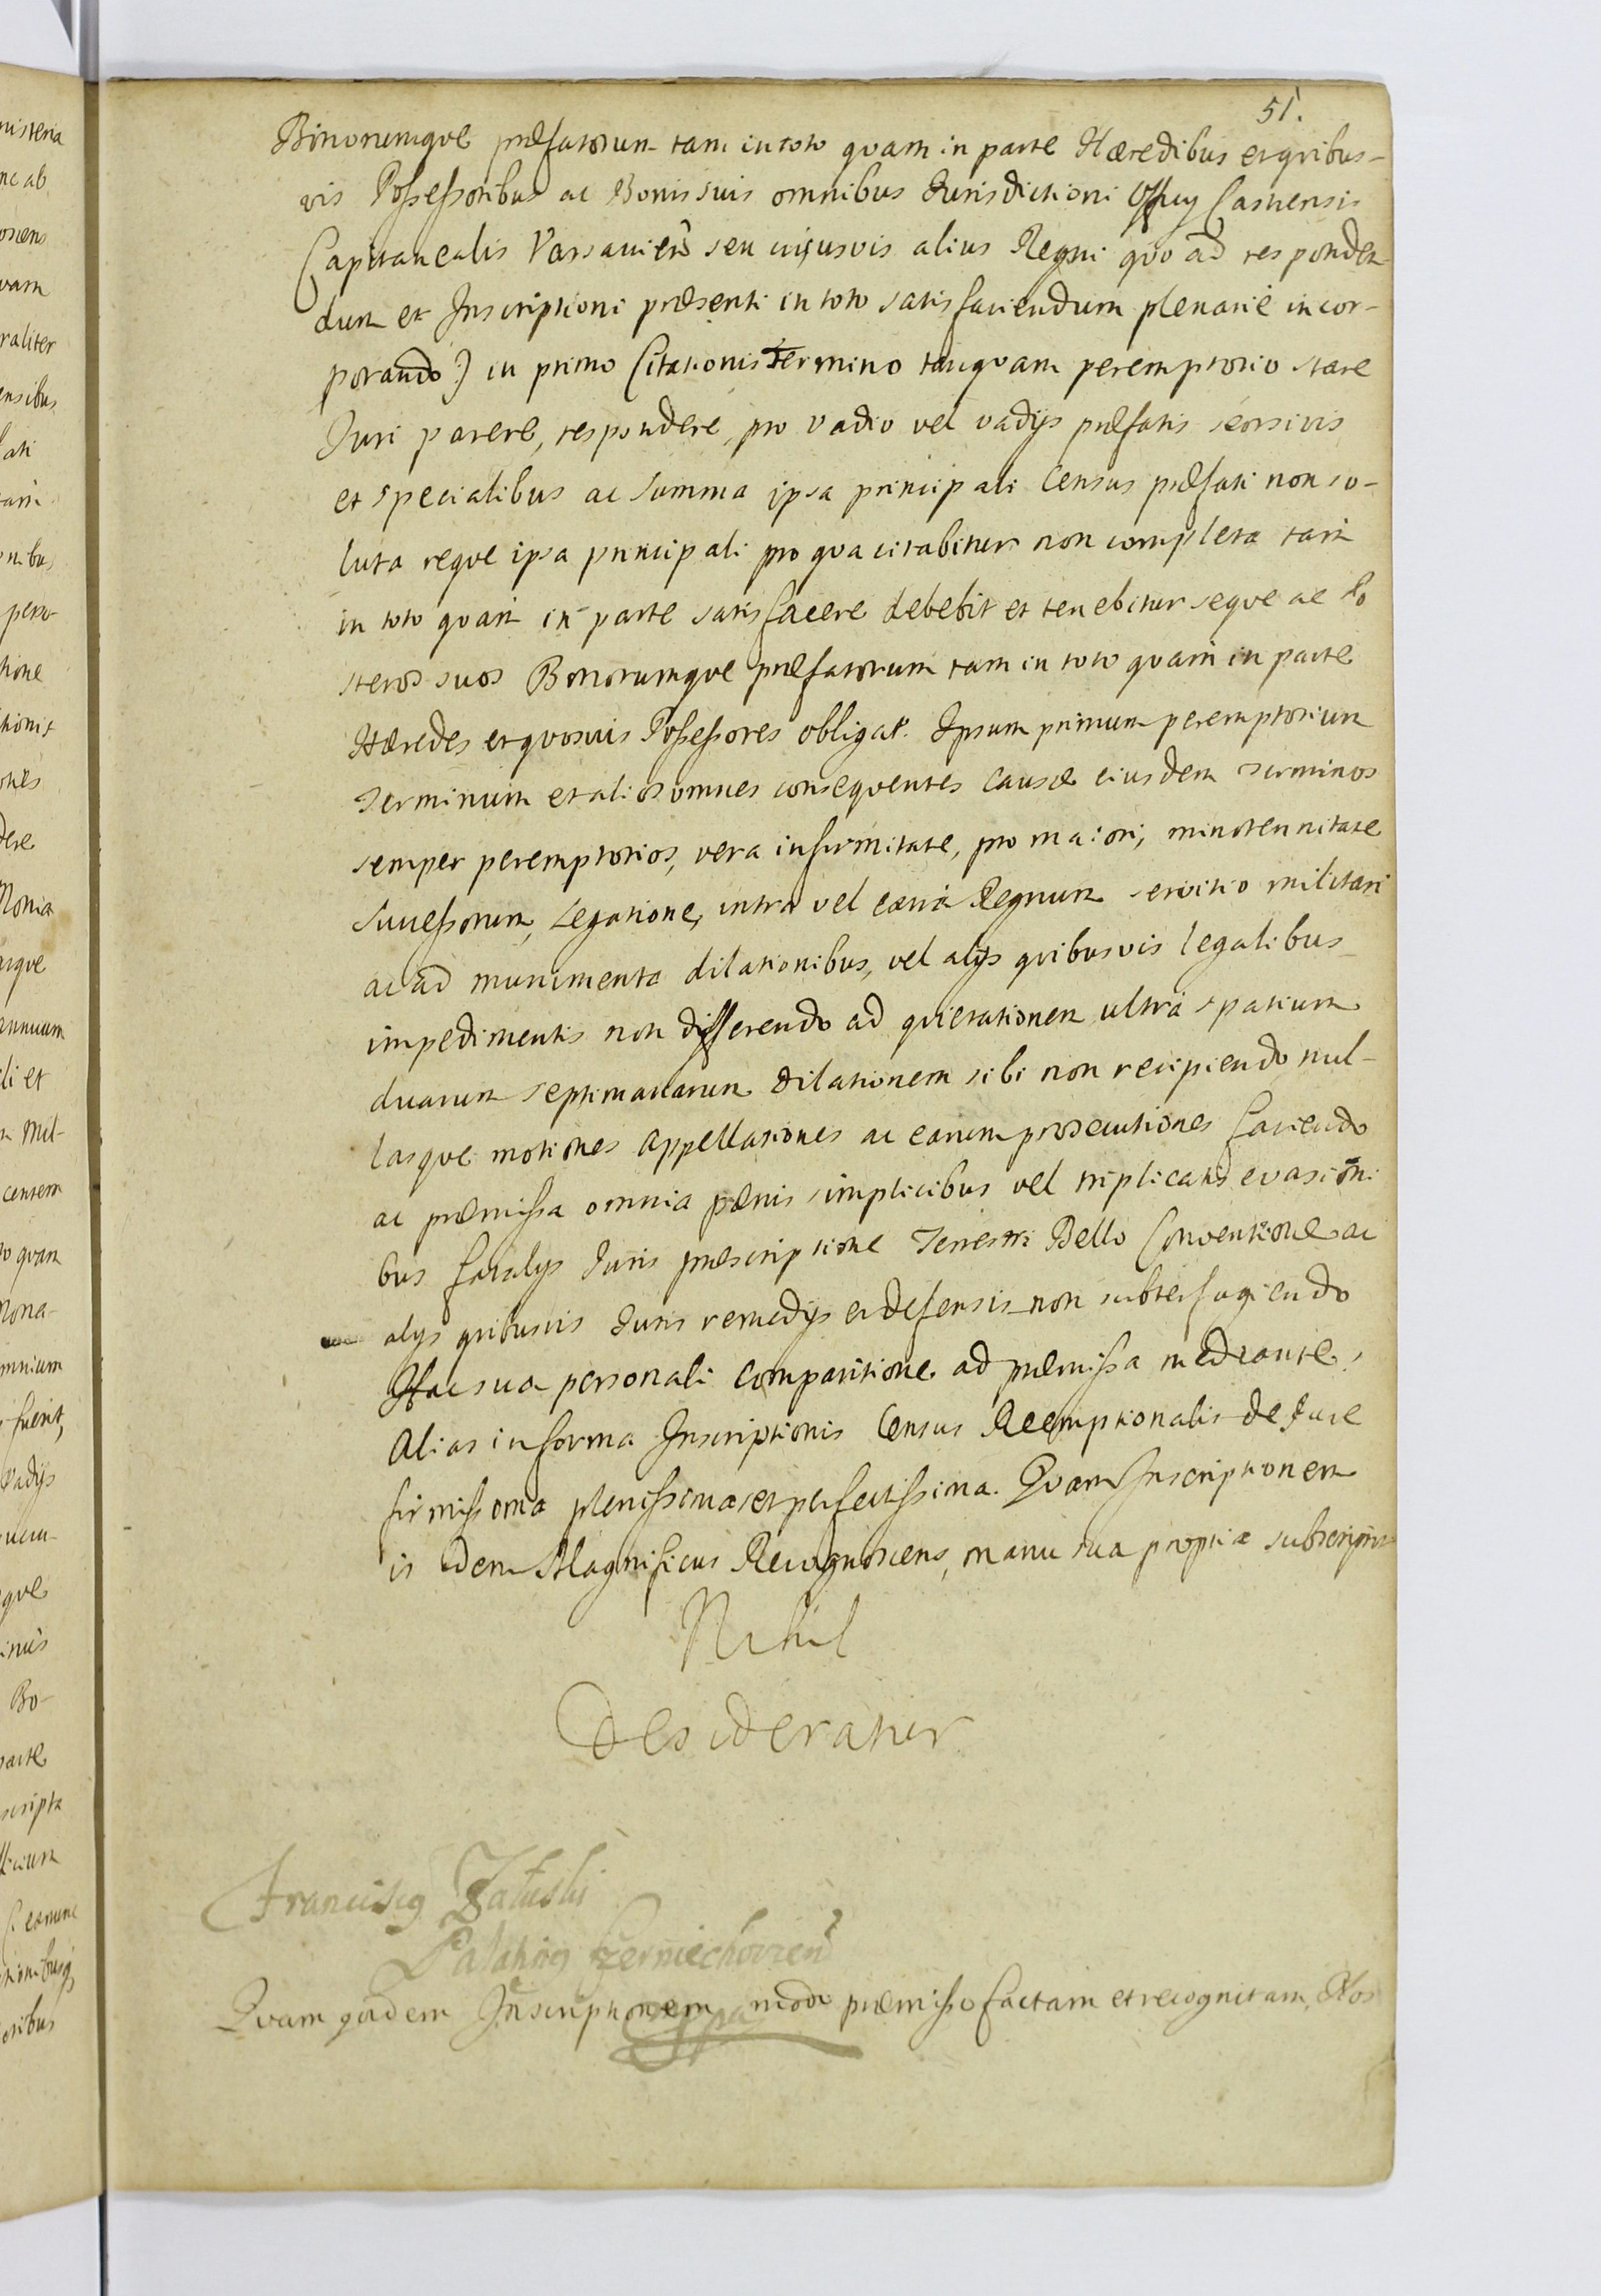 51.
Bonorumque præfatorum tam in toto quam in parte Hæredibus et quibus-
vis Possessoribus ac Bonis suis omnibus Iurisdictioni Officij Castrensis
Capitanealis Varsavien seu cujusvis alius Regni quo ad responden-
dum et Inscriptioni præsenti in toto satisfaciendum plenarie incor-
porando:) in primo Citationis Termino tanquam peremptorio stare
Juri parere, respondere, pro vadio vel vadijs præfatis seorsivis
et specialibus ac summa ipsa principali Census præfati non so-
luta reque ipsa principali pro qua citabitur non completa tam
in toto quam in parte satisfacere debebit et tenebitur seque ac Po
steros suos Bonorumque præfatorum tam in toto quam in parte
Hæredes et quosvis Possessores obligat. Ipsum primum peremptorium
Terminum et alios omnes consequentes causæ eiusdem Terminos
semper peremptorios, vera infirmitate, pro maiori, minorennitate
Successorum, Legatione, intra vel extra Regnum servitio militari
ac ad munimenta dilationibus, vel alijs quibusvis legalibus
impedimentis non differendo ad quietationem ultra spatium
duarum septimanarum dilationem sibi non recipiendo nul-
lasque motiones appellationes ac earum prosecutiones faciendo
ac præmissa omnia pænis simplicibus vel triplicatis evasioni
bus fatalijs Iuris præscriptione Terrestri Bello Conventione ac
alijs quibusvis Iuris remedijs et defensis non subterfugiendo
Hac sua personali comparitione ad præmissa mediante,
Alias in forma Inscriptionis Census Reemptionalis de Jure
firmissima plenissima et perfectissima. Quam Inscriptionem
is dem Magnificus Recognoscens, manu sua propria subscripsit
Nihil
Desideratur
Franciscg Załuski
Palating Czerniechovien
Quam quidem Inscriptionem modo præmisso factam et recognitam, Nos